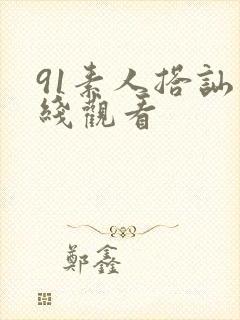 91素人搭訕
綫觀看
鄭鑫